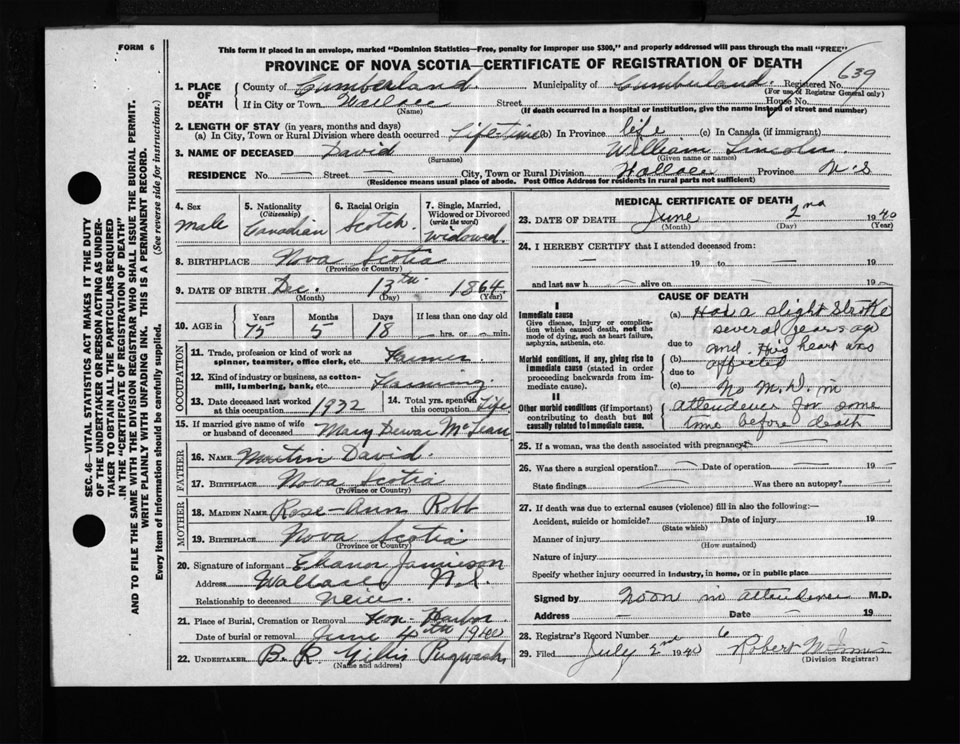 FORM 6
This form if placed in an envelope, marked "Dominion Statistics—Free, penalty for improper use $300," and properly addressed will pass through the mail "FREE"
PROVINCE OF NOVA SCOTIA—CERTIFICATE OF REGISTRATION OF DEATH
639
1. PLACE OF DEATH County of Cumberland Municipality of Cumberland Registered No.
(For use of Registrar General only)
If in City or Town Wallace Street House No.
(Name) (If death occurred in a hospital or institution, give the name instead of street and number)
2. LENGTH OF STAY (in years, months and days)
(a) In City, Town or Rural Division where death occurred Life-time (b) In Province life (c) In Canada (if immigrant)
3. NAME OF DECEASED David William Lincoln
(Surname) (Given name or names)
RESIDENCE No. — Street — City, Town or Rural Division Wallace Province N.S
(Residence means usual place of abode. Post Office Address for residents in rural parts not sufficient)
4. Sex Male
5. Nationality (Citizenship) Canadian
6. Racial Origin Scotch
7. Single, Married, Widowed or Divorced (write the word) Widowed.
8. BIRTHPLACE Nova Scotia
(Province or Country)
9. DATE OF BIRTH Dec. 13th 1864
(Month) (Day) (Year)
10. AGE in Years Months Days If less than one day old
75 5 18 — hrs. or — min.
OCCUPATION
11. Trade, profession or kind of work as spinner, teamster, office clerk, etc. Farmer
12. Kind of industry or business, as cotton-mill, lumbering, bank, etc. Farming
13. Date deceased last worked at this occupation 1932
14. Total yrs. spent in this occupation Life
15. If married give name of wife or husband of deceased Mary Dewar McLean
FATHER
16. NAME Martin David.
17. BIRTHPLACE Nova Scotia
(Province or Country)
MOTHER
18. MAIDEN NAME Rose-Ann Robb
19. BIRTHPLACE Nova Scotia
(Province or Country)
20. Signature of informant Jamieson
Address Wallace N.S.
Relationship to deceased neice
21. Place of Burial, Cremation or Removal
Date of burial or removal June 4th 1940
22. UNDERTAKER B. R. Gillis Pugwash
(Name and address)
MEDICAL CERTIFICATE OF DEATH
23. DATE OF DEATH June 2nd 1940
(Month) (Day) (Year)
24. I HEREBY CERTIFY that I attended deceased from:
— 19 — to — 19 —
and last saw h — alive on — 19 —
CAUSE OF DEATH
I
Immediate cause
Give disease, injury or complication which caused death, not the mode of dying, such as heart failure, asphyxia, asthenia, etc.
Morbid conditions, if any, giving rise to immediate cause (stated in order proceeding backwards from immediate cause).
II
Other morbid conditions (if important) contributing to death but not causally related to immediate cause.
(a) Had a slight Stroke
several years ago
due to and. His heart was
(b) affected
due to
(c) No M.D. in
attendence for some
time before death
25. If a woman, was the death associated with pregnancy? —
26. Was there a surgical operation? — Date of operation — 19 —
State findings — Was there an autopsy? —
27. If death was due to external causes (violence) fill in also the following:—
Accident, suicide or homicide? Date of injury 19
(State which)
Manner of injury
(How sustained)
Nature of injury
Specify whether injury occurred in industry, in home, or in public place
Signed by No one in attendence M.D.
Address — Date — 19
28. Registrar's Record Number 6
29. Filed July 2nd 1940 Robert McInnis
(Division Registrar)
SEC. 46—VITAL STATISTICS ACT MAKES IT THE DUTY
OF THE UNDERTAKER OR PERSON ACTING AS UNDER-
TAKER TO OBTAIN ALL THE PARTICULARS REQUIRED
IN THE "CERTIFICATE OF REGISTRATION OF DEATH"
AND TO FILE THE SAME WITH THE DIVISION REGISTRAR WHO SHALL ISSUE THE BURIAL PERMIT.
WRITE PLAINLY WITH UNFADING INK. THIS IS A PERMANENT RECORD.
Every item of information should be carefully supplied. (See reverse side for instructions.)